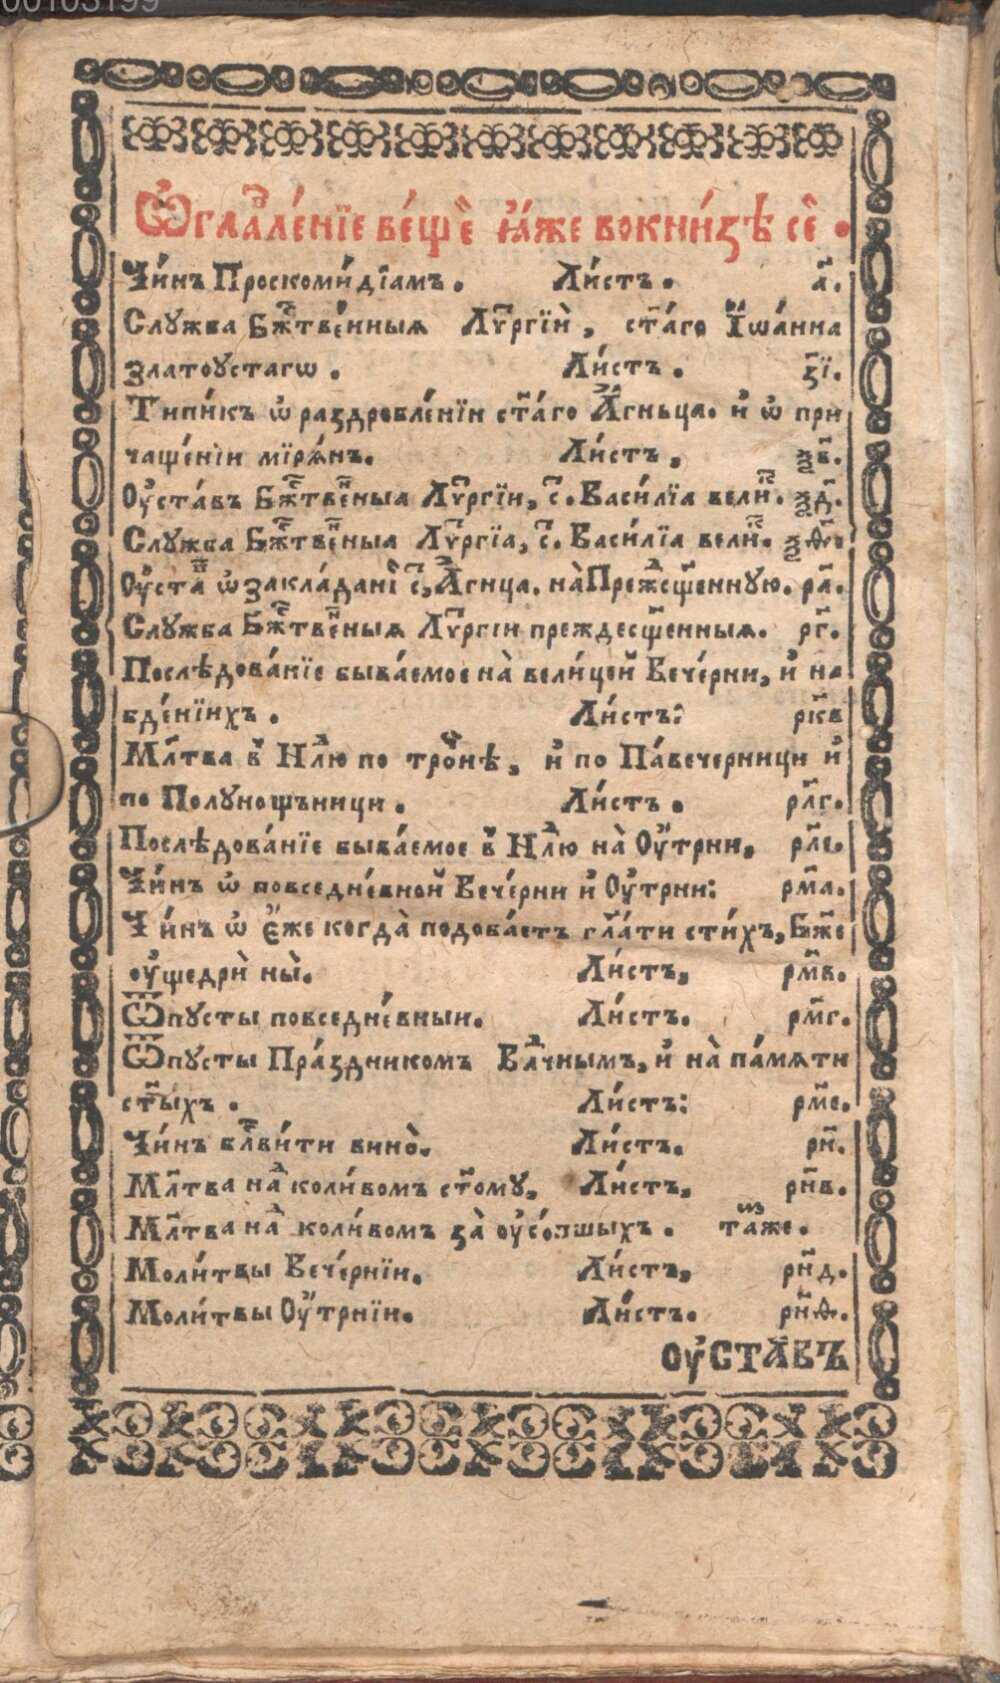 00103199
Ѡ҆глаⷣле́нїе ве́щеⷨ ꙗ҆́же вокни́зѣ сеⷨ .
Чи́нъ Проскоми́дїамъ . Ли́стъ . а҃.
Служба Бжⷭ҇тве́нныѧ Лѵⷮргїи̏ , ст҃а́го І҆ѡа́нна
златоустагѡ . Ли́стъ . з҃ї.
Типи́къ ѡ҆ раздробле́нїи ст҃а́го А҆́гньца. и҆ ѡ҆ при
чаще́нїи мїрѧ́нъ. Ли́стъ , ѯ҃в.
Оу҆ста́въ Бжⷭ҇твеⷩ҇ныа Лѵⷮргїи, с҃. Васи́лїа велиⷦ҇. ѯ҃д.
Служба Бжⷭ҇твеⷩ҇ныа Лѵⷮргїа, с҃. Васи́лїа велиⷦ҇. ѯ҃ѳ.
Оу҆стаⷡ ѡ҆закла́данї с҃, А҆́гнца. на̀Прежⷣесщ҃енную. ра҃.
Служба Бжⷭ҇твеⷩ҇ныѧ Лѵⷮргїи преждесщ҃енныѧ. рг҃.
Послѣдова́нїе быва́емое на̀ вели́цей Вече́рни, и҆ на
бде́нїихъ . Ли́стъ: рк҃в
Мл҃тва в̾ Нлⷣю по троⷱ҇нѣ, и҆ по Па́вечерници и҆
по Полунощъници . Ли́стъ . рл҃г.
Послѣдова́нїе быва́емое в̾ Нлⷣю на̀ Оу҆́трни, рл҃е.
Чи́нъ ѡ҆ повседне́вной Вече́рни и҆ Оу҆́трни: рм҃а.
Чи́нъ ѡ҆ є҆́же когда̀ подоба́етъ гл҃ати сти́хъ, Бж҃е
оу҆щедри̏ ны̀. Ли́стъ, рм҃в.
Ѿпусты повседне́вныи. Ли́стъ. рм҃г.
Ѿпусты Пра́здникомъ Влⷣчнымъ, и҆ на̀ па́мѧти
ст҃ы́хъ . Ли́стъ: рм҃е.
Чи́нъ бл҃ви́ти вино̀. Ли́стъ. рн҃.
Мл҃тва наⷣ коли́вомъ ст҃ому, Ли́стъ, рн҃в.
Мл҃тва наⷣ коли́вомъ за̀ оу҆со́пшыхъ . таже.
Моли́твы Вече́рнїи. Ли́стъ, рн҃д.
Моли́твы Оу҆́трнїи. Ли́стъ. рн҃ѳ.
Оу҆СТА́ВЪ